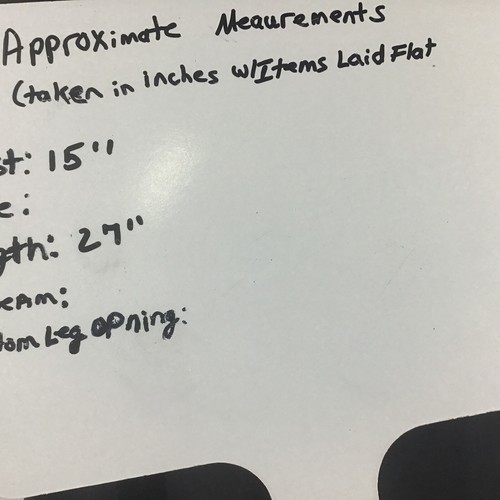 Approximate Meaurements
(taken in inches w/Items Laid Flat
st: 15"
e:
gth: 27"
eam:
tom Leg opning: